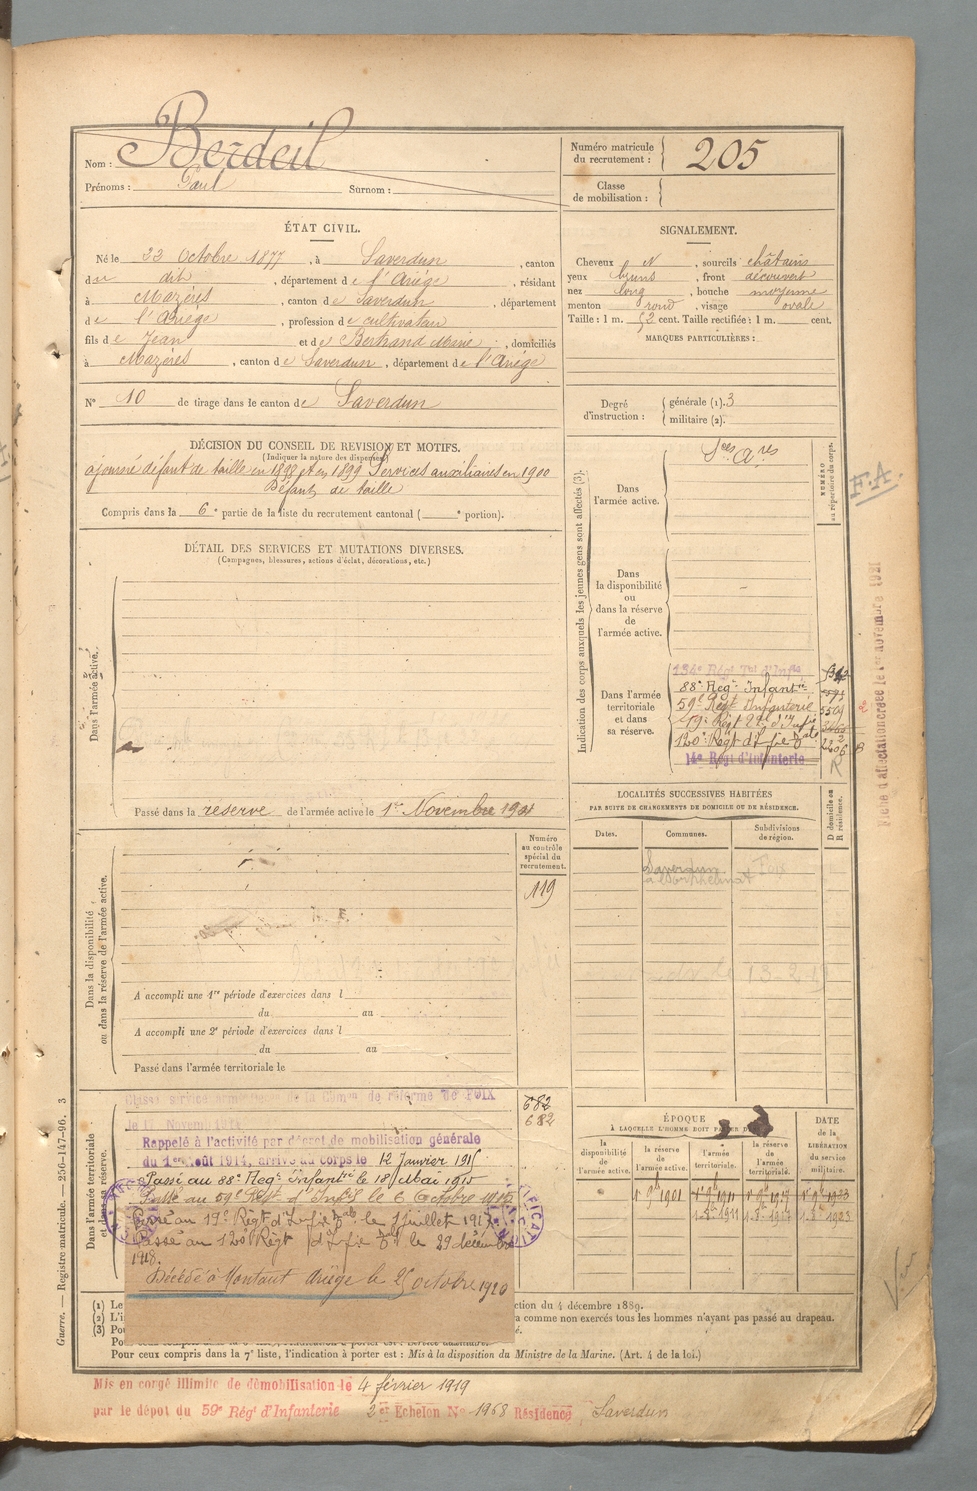 Nom : Berdeil
Prénoms : Paul Surnom :
Numéro matricule du recrutement : 205
Classe de mobilisation :
ÉTAT CIVIL.
Né le 22 Octobre 1877, à Saverdun, canton
du dit, département de l'Ariège, résidant
à Mazéres, canton de Saverdun, département
de l'Ariège, profession de cultivateur
fils de Jean et de Bertrand Marie, domiciliés
à Mazéres, canton de Saverdun, département de l'Ariège
N° 10 de tirage dans le canton de Saverdun
SIGNALEMENT.
Cheveux N, sourcils châtains
yeux bruns, front découvert
nez long, bouche moyenne
menton rond, visage ovale
Taille : 1 m. 52 cent. Taille rectifiée : 1 m. cent.
MARQUES PARTICULIÈRES :
Degré d'instruction : générale (1). 3
militaire (2).
DÉCISION DU CONSEIL DE REVISION ET MOTIFS.
(Indiquer la nature des dispenses)
ajourné défaut de taille en 1898 et en 1899 Services auxiliaires en 1900
Défaut de taille
Compris dans la 6e partie de la liste du recrutement cantonal ( e portion).
DÉTAIL DES SERVICES ET MUTATIONS DIVERSES.
(Campagnes, blessures, actions d'éclat, décorations, etc.)
Dans l'armée active.
Passé dans la reserve de l'armée active le 1er Novembre 1901
Indication des corps auxquels les jeunes gens sont affectés (3).
NUMÉRO au répertoire du corps.
Dans l'armée active.
Sces Ares
Dans la disponibilité ou dans la réserve de l'armée active.
Dans l'armée territoriale et dans sa réserve.
134e Régt Tal d'Infie
88e Régt Infantrie
59e Régt Infanterie
19e Régt d'Infie
120e Régt d'Infie
14e Regt d'Infanterie
F.A.
Fiche d'affectation créée le 1er novembre 1921
LOCALITÉS SUCCESSIVES HABITÉES
PAR SUITE DE CHANGEMENTS DE DOMICILE OU DE RÉSIDENCE.
Dates. Communes. Subdivisions de région. D domicile ou R résidence.
Saverdun Foix
à l'orphelinat
Dans la disponibilité ou dans la réserve de l'armée active.
Numéro au contrôle spécial du recrutement.
119
A accompli une 1re période d'exercices dans l
du au
A accompli une 2e période d'exercices dans l
du au
Passé dans l'armée territoriale le
Dans l'armée territoriale et dans sa réserve.
682
682
Classé service armé de la Comon de réforme de FOIX
le 17 Novemb 1914
Rappelé à l'activité par décret de mobilisation générale
du 1er août 1914, arrivé au corps le 12 Janvier 1915
Passé au 88e Régt Infantrie le 18 Mai 1915
Passé au 59e Régt d'Infie le 6 Octobre 1915
Passé au 19e Régt d'Infie le 1 juillet 1917
Passé au 120e Régt d'Infie le 29 décembre
1918.
Décédé à Montaut Ariège le 25 octobre 1920
ÉPOQUE
À LAQUELLE L'HOMME DOIT PASSER DANS
la disponibilité de l'armée active. la réserve de l'armée active. l'armée territoriale. la réserve de l'armée territoriale.
DATE de la LIBÉRATION du service militaire.
1er 9bre 1901 1er 9bre 1911 1er 9bre 1917 1er 9bre 1923
(1) Le
(2) L'i
(3) Pou
ction du 4 décembre 1889.
a comme non exercés tous les hommes n'ayant pas passé au drapeau.
Pour ceux compris dans la 7e liste, l'indication à porter est : Mis à la disposition du Ministre de la Marine. (Art. 4 de la loi.)
Mis en congé illimité de démobilisation le 4 février 1919
par le dépot du 59e Régt d'Infanterie 2e Echelon N° 1968 Résidence Saverdun
Guerre. — Registre matricule. — 256-147-96. 3
Vu